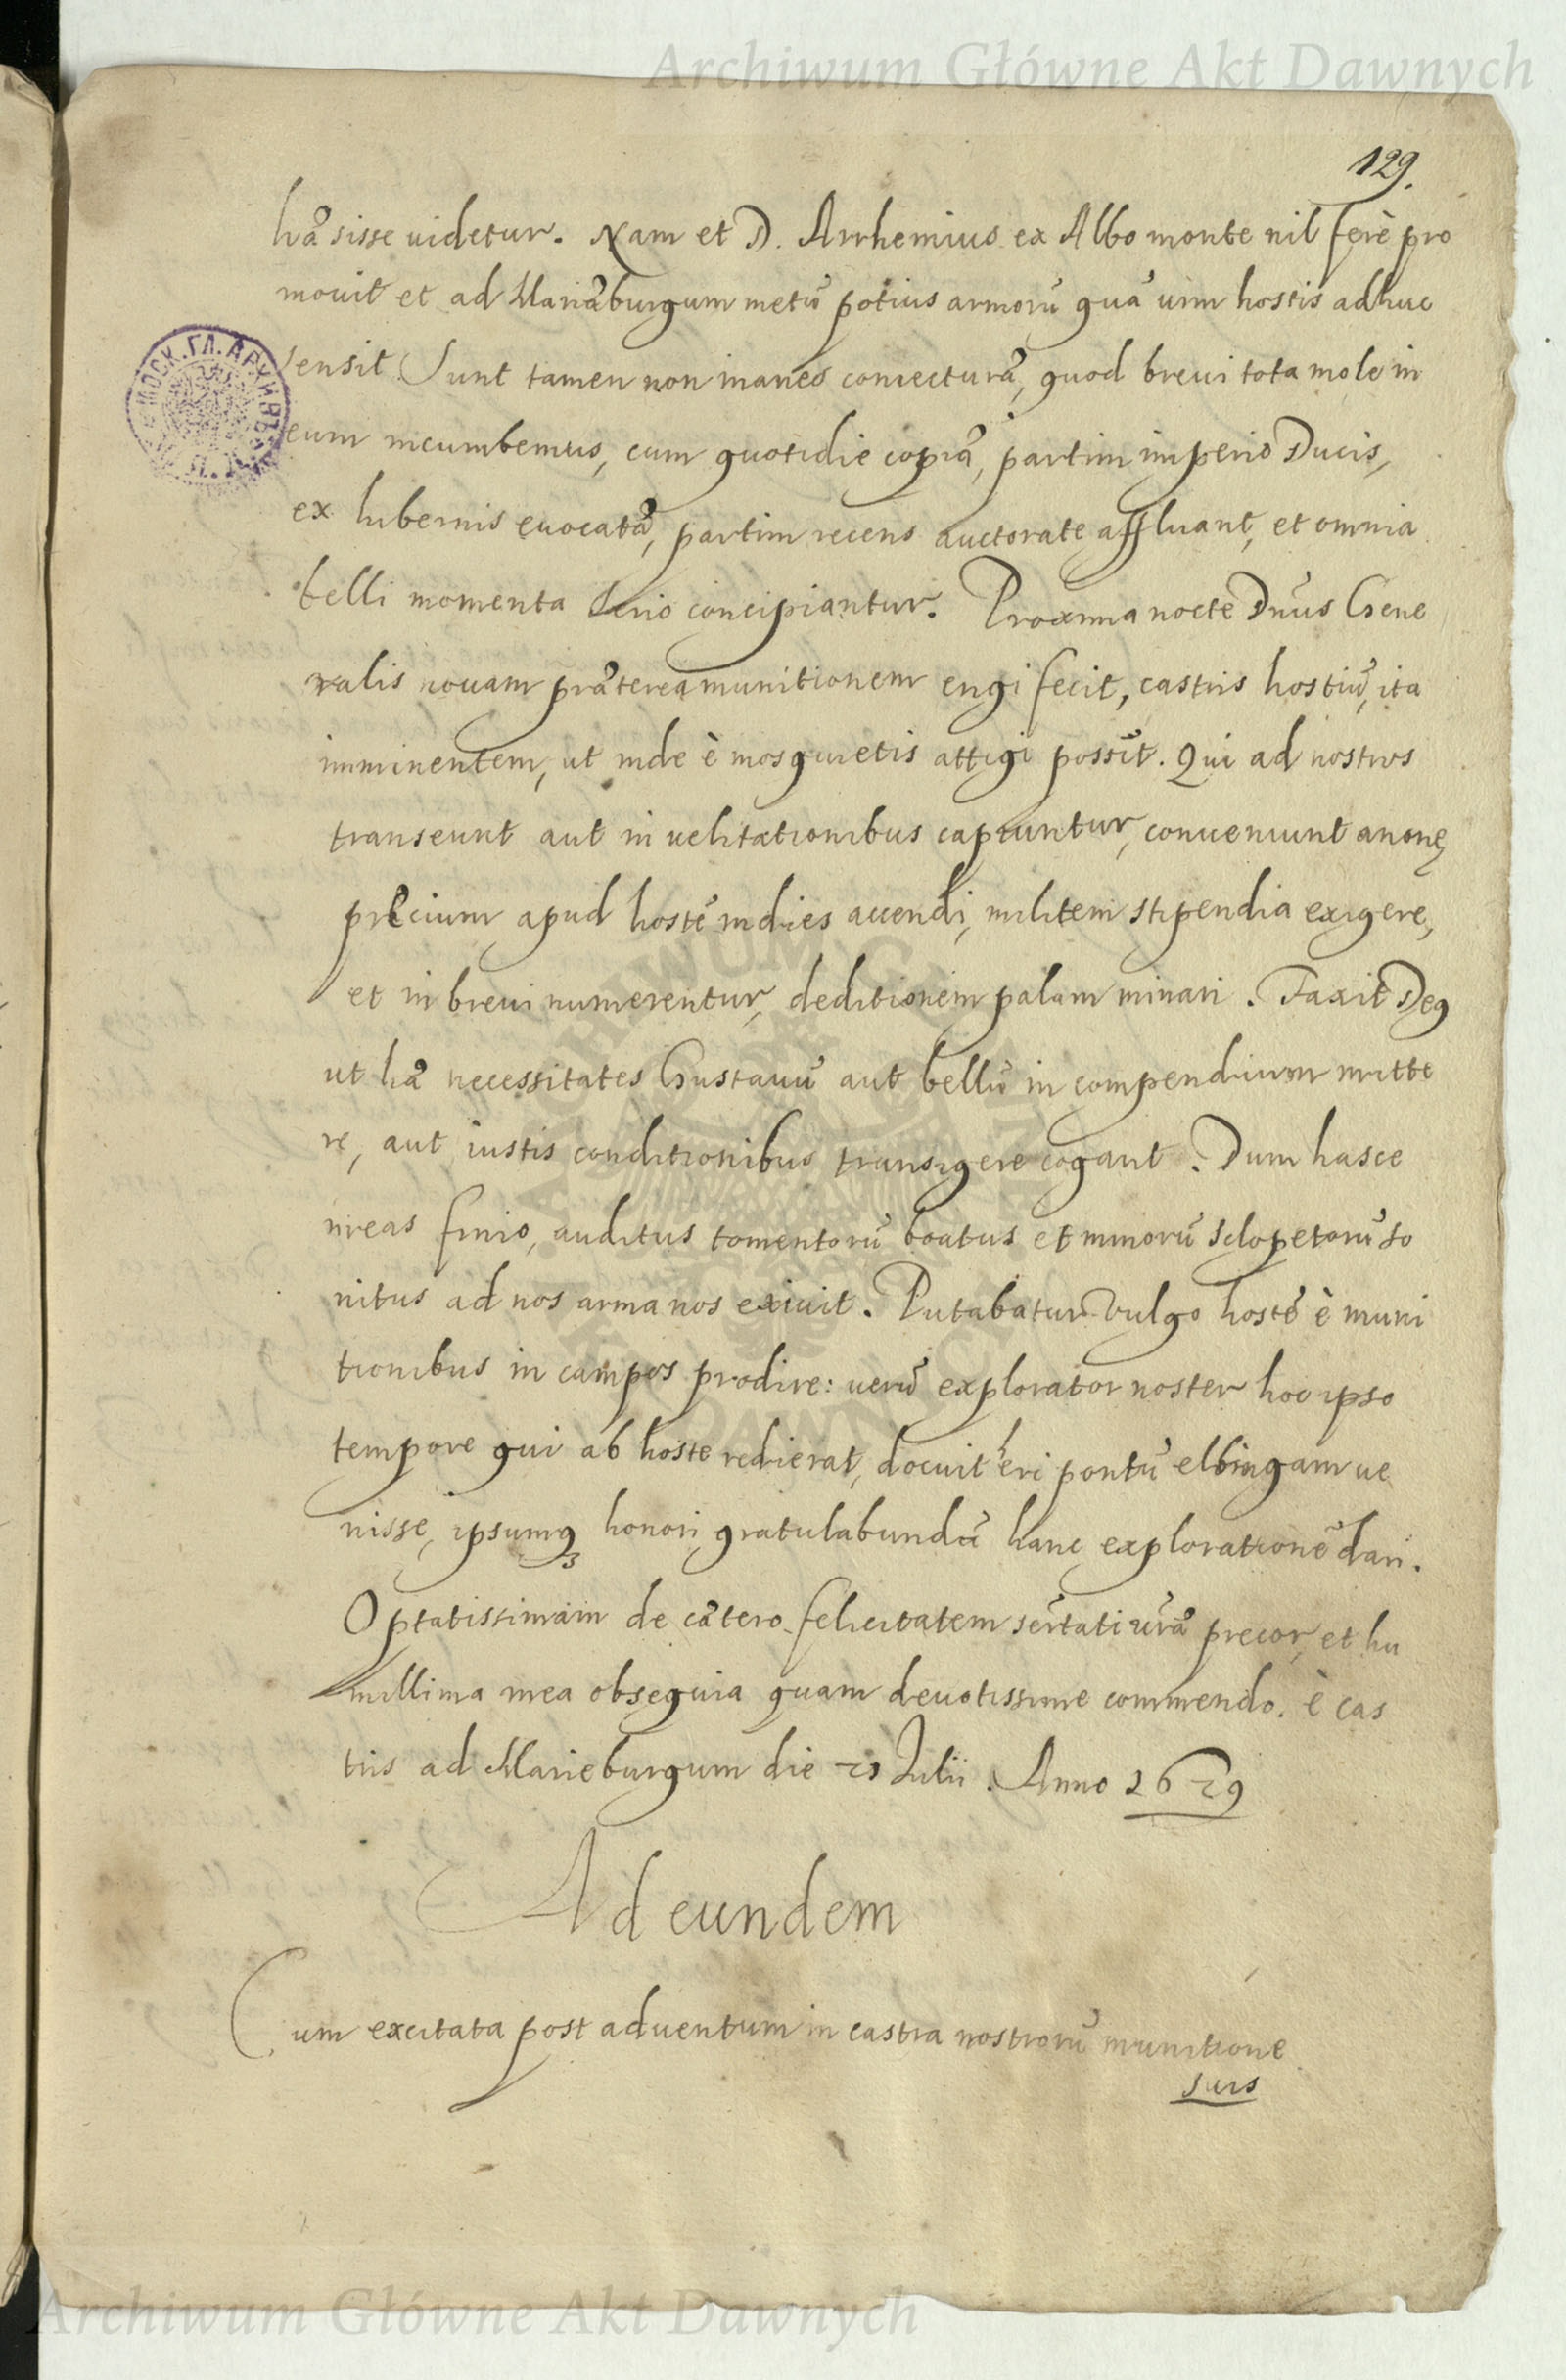 Archiwum Główne Akt Dawnych
129.
hæsisse uidetur. Nam et D. Arrhemius ex Albo monte nil ferè pro
mouit et ad Mariæburgum metũ potius armorũ quã uim hostis adhuc
sensit. Sunt tamen non inanes coniecturæ, quod breui tota mole in
eum incumbemus, cum quotidie copiæ, partim imperio Ducis,
ex hibernis euocatæ, partim recens auctorate affluant, et omnia
belli momenta serio concipiantur. Proxima nocte Dnũs Gene
ralis nouam præterea munitionem erigi fecit, castris hostiũ, ita
imminentem, ut inde è mosquetis attigi possit. Qui ad nostros
transeunt aut in uelitationibus capiuntur, conueniunt anonę
precium apud hostẽ indies accendi, militem stipendia exigere,
et in breui numerentur, deditionem palam minari. Faxit Deꝰ
ut hæ necessitates Gustauũ aut bellũ in compendium mitte
re, aut iustis conditionibus transigere cogant. Dum hasce
lineas finio, auditus tormentorũ boatus et minorũ sclopetorũ so
nitus ad nos arma nos exiuit. Putabatur vulgo hostẽ è muni
tionibus in campos prodire: uerũ explorator noster hoc ipso
tempore qui ab hoste redierat, docuit heri pontũ elbingam ue
nisse, ipsumqꝫ honori gratulabundũ hanc explorationẽ dari.
Optatissimam de cætero felicitatem serẽtati uræ̃ precor, et hu
millima mea obsequia quam deuotissime commendo. è cas
tris ad Marieburgum die 21 Julii. Anno 1629
Ad eundem
Cum excitata post aduentum in castra nostrorũ munitione
suis
Archiwum Główne Akt Dawnych